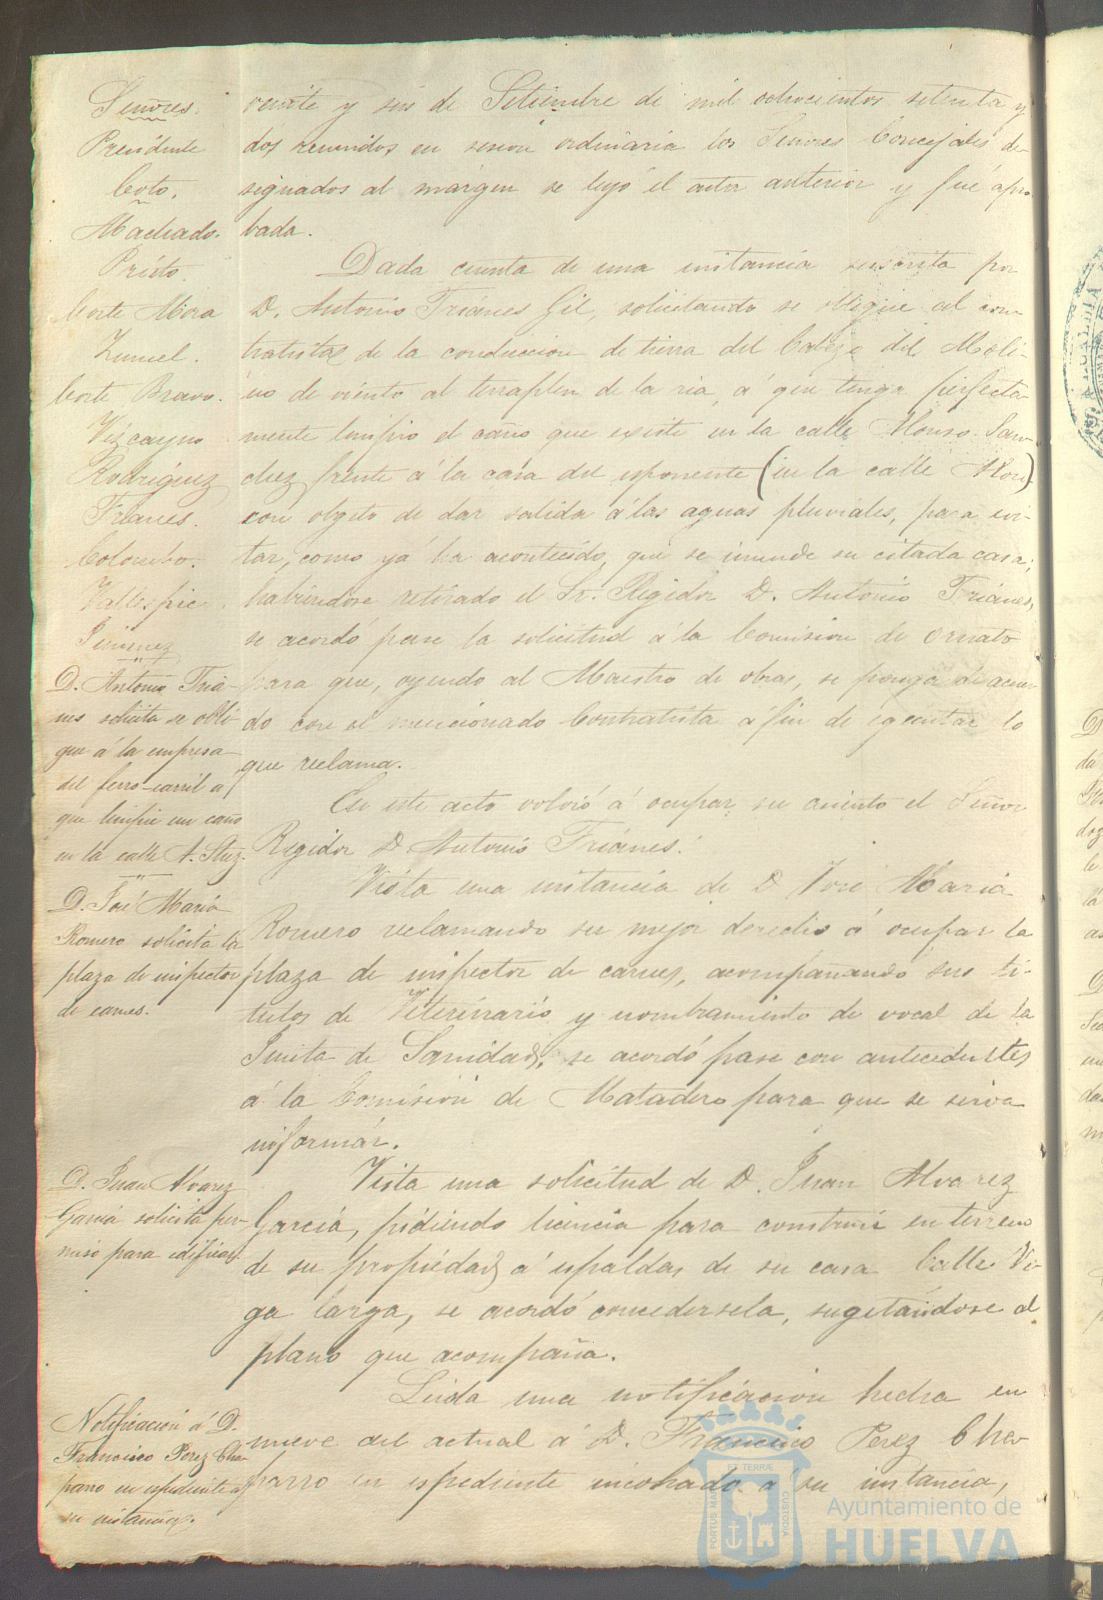 Señores.
Presidente
Coto.
Machado.
Prieto.
Corte Mora
Zumel.
Corte Bravo.
Vizcayno
Rodriguez
Trianes.
Colombo.
Vallespin.
Jimenez
D. Antonio Tria-
nes solicita se obli-
gue á la empresa
del ferro-carril a
que limpie un caño
en la calle A. Shez.
D. José Maria
Romero solicita la
plaza de inspector
de carnes.
D. Juan Alvarez
Garcia solicita per-
miso para edificar.
Notificacion á D.
Francisco Perez Cha-
parro en espediente a
su instancia.
veinte y seis de Setiembre de mil ochocientos setenta y
dos reunidos en sesion ordinaria los Señores Concejales de-
signados al margen se leyó el acta anterior y fué apro-
bada.
Dada cuenta de una instancia suscrita por
D. Antonio Triánes Gil, solicitando se obligue al con-
tratista de la conduccion de tierra del Cabezo del Moli-
no de viento al terraplen de la ria, á que tenga perfecta-
mente limpio el caño que existe en la calle Alonso San-
chez frente á la casa del esponente (en la calle
con objeto de dar salida á las aguas pluviales, para evi-
tar, como yá ha acontecido, que se inunde su citada casa;
habiendose retirado el Sr. Regidor D. Antonio Triánes,
se acordó pase la solicitud á la Comision de Ornato
para que, oyendo al Maestro de obras, se ponga de acuer-
do con el mencionado Contratista á fin de egecutar lo
que reclama.
En este acto volvió á ocupar su asiento el Señor
Regidor D Antonio Triánes.
Vista una instancia de D José Maria
Romero reclamando su mejor derecho á ocupar la
plaza de inspector de carnes, acompañando sus ti-
tulos de Veterinario y nombramiento de vocal de la
Junta de Sanidad, se acordó pase con antecedentes
á la Comision de Matadero para que se sirva
informar.
Vista una solicitud de D. Juan Alvarez
Garcia, pidiendo licencia para construir en terreno
de su propiedad á espaldas de su casa Calle Ve-
ga larga, se acordó concedersela, sugetandose al
plano que acompaña.
Leida una notificacion hecha en
nueve del actual á D. Francisco Perez Cha-
parro en espediente incohado a su instancia,
PORTUS MARIS ET TERRÆ CUSTODIA
Ayuntamiento de
HUELVA